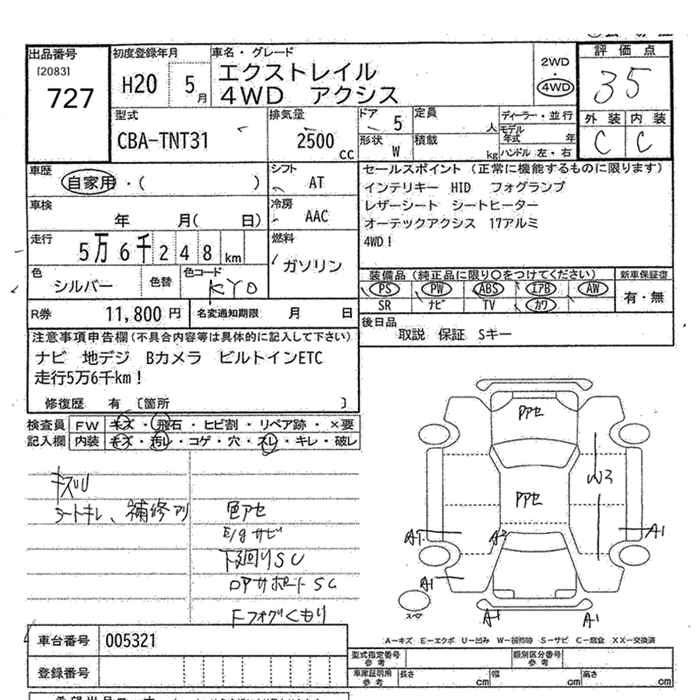 出品番号 初度登録年月 車名・グレード 評価点
[2083] 727 H20 5月 エクストレイル 2WD 35
4WD アクシス 4WD
型式 排気量 ドア 5 定員 人 ディーラー・並行 外装 内装
CBA-TNT31 2500cc 形状 W 積載 kg モデル年式 年 C C
ハンドル 左・右
車歴 シフト セールスポイント (正常に機能するものに限ります)
自家用・( ) AT インテリキー HID フォグランプ
車検 冷房 レザーシート シートヒーター
年 月( 日) AAC オーテックアクシス 17アルミ
走行 燃料 4WD!
5万6千248km ガソリン
色 色替 色コード 装備品 (純正品に限り○をつけてください) 新車保証書
シルバー KY0 PS PW ABS エアB AW 有・無
SR ナビ TV カワ
R券 11,800円 名変通知期限 月 日 後日品
注意事項申告欄(不具合内容等は具体的に記入して下さい) 取説 保証 Sキー
ナビ 地デジ Bカメラ ビルトインETC
走行5万6千km!
修復歴 有 〔箇所 〕
検査員 FW キズ・飛石・ヒビ割・リペア跡・×要
記入欄 内装 キズ・汚レ・コゲ・穴・スレ・キレ・破レ
シートキレ、補修アリ 色アセ
E/gサビ
下廻りSC
Fフォグくもり
アセ
アセ
W2
A1
A1
A1 A1
スペア
A-キズ E-エクボ U-凹み W-補修跡 S-サビ C-腐食 XX-交換済
車台番号 005321 型式指定番号 参考 類別区分番号 参考
登録番号 車庫証明用 参考 長さ cm 幅 cm 高さ cm